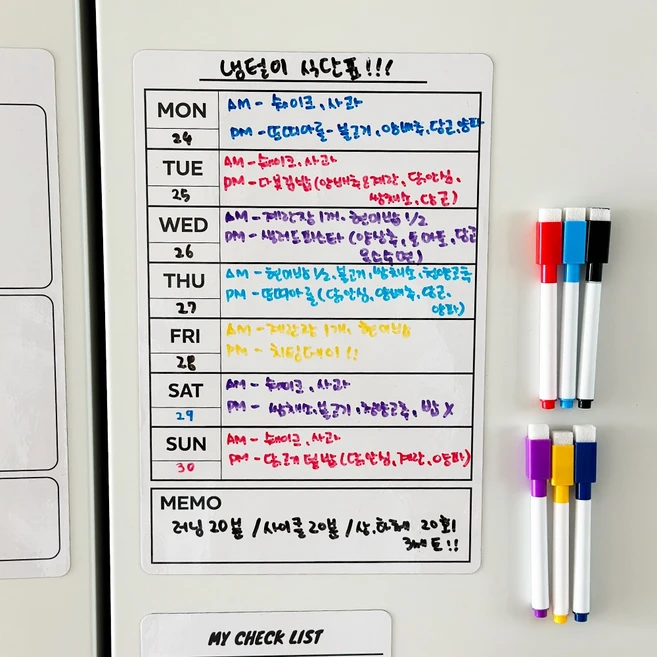 냉털이 식단표!!!
MON
24
AM - 쉐이크, 사과
PM - 또띠아롤 - 불고기, 양배추, 당근, 양파
TUE
25
AM - 쉐이크, 사과
PM - 다봄김밥(양배추, 계란, 닭안심,
쌈채소, 당근)
WED
26
AM - 계란장 1개, 현미밥 1/2
PM - 샐러드파스타 (양상추, 토마토, 당근
옥수수면)
THU
27
AM - 현미밥 1/2, 불고기, 쌈채소, 청양고추
PM - 또띠아롤(닭안심, 양배추, 당근,
양파)
FRI
28
AM - 계란장 1개, 현미밥
PM - 치팅데이!!
SAT
29
AM - 쉐이크, 사과
PM - 쌈채소, 불고기, 청양고추, 밥 X
SUN
30
AM - 쉐이크, 사과
PM - 닭고기 덮밥 (닭안심, 계란, 양파)
MEMO
러닝 20분 / 사이클 20분 / 상.하체 20회
3세트!!
MY CHECK LIST